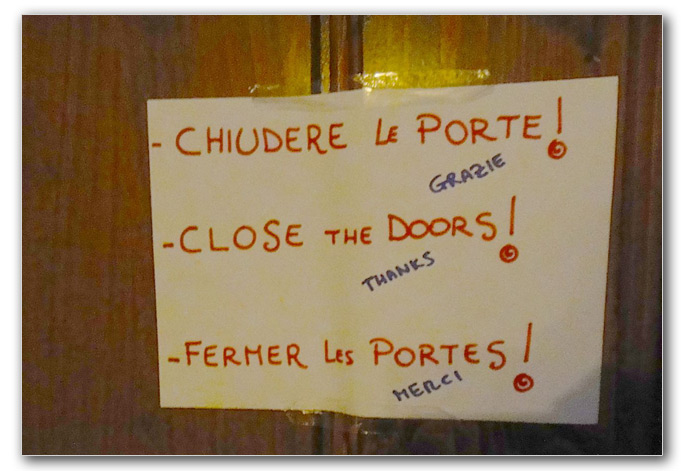 - CHIUDERE LE PORTE!
GRAZIE
- CLOSE THE DOORS!
THANKS
- FERMER LES PORTES!
MERCI